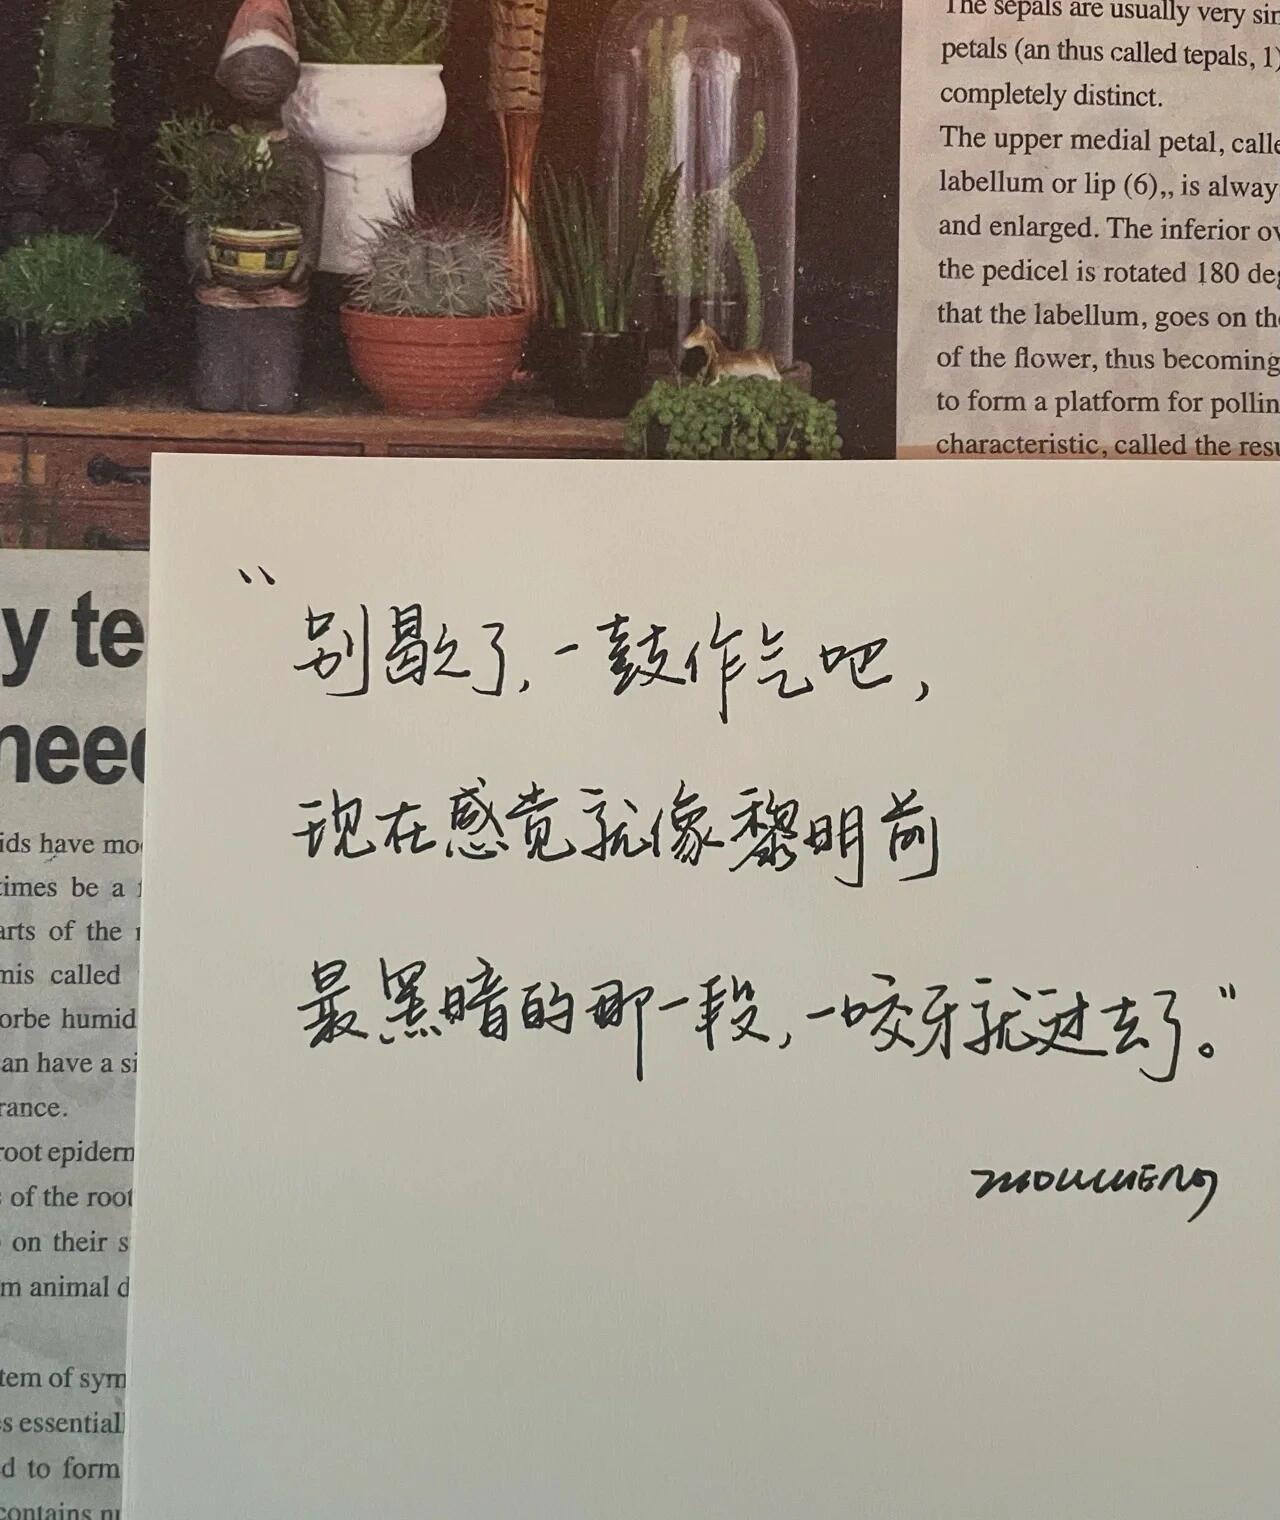 The sepals are usually very
petals (an thus called tepals, 1)
completely distinct.
The upper medial petal,
labellum or lip (6),, is
and enlarged. The inferior
the pedicel is rotated 180
that the labellum, goes on
of the flower, thus becoming
to form a platform for
characteristic, called the
y te
need
ids have
times be a
arts of the
mis called
orbe humid
an have a
rance.
root
of the root
on their
m animal
tem of
s
d to form
contains
“别歇了,一鼓作气吧,
现在感觉就像黎明前
最黑暗的那一段,一咬牙就过去了。”